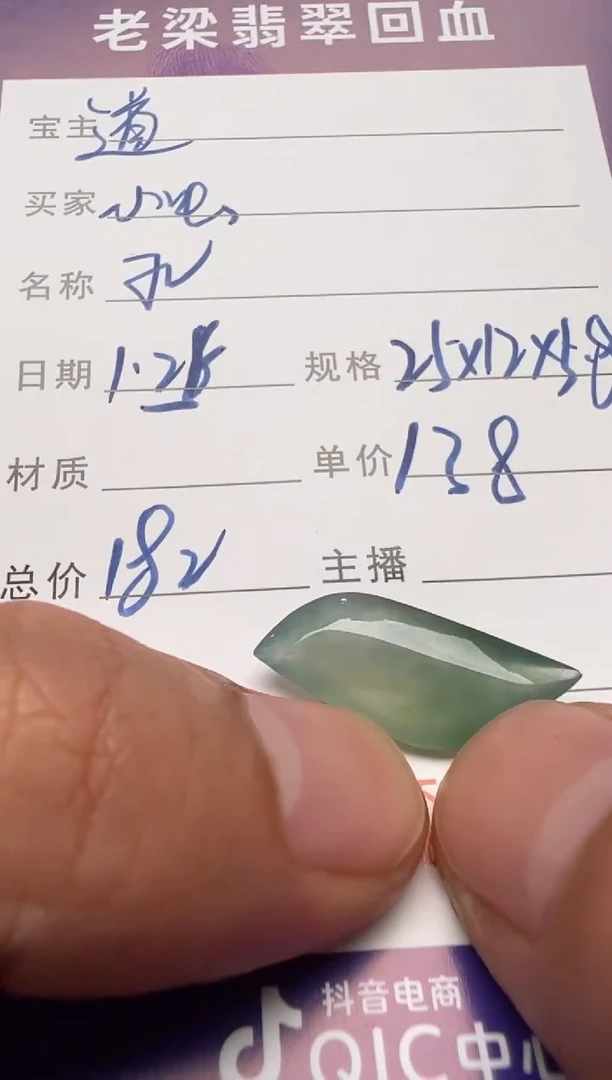 老梁翡翠回血
宝主 道
买家
名称
日期 1.28 规格 25×12×5.8
材质 单价 138
总价 182 主播
抖音电商
QIC中心